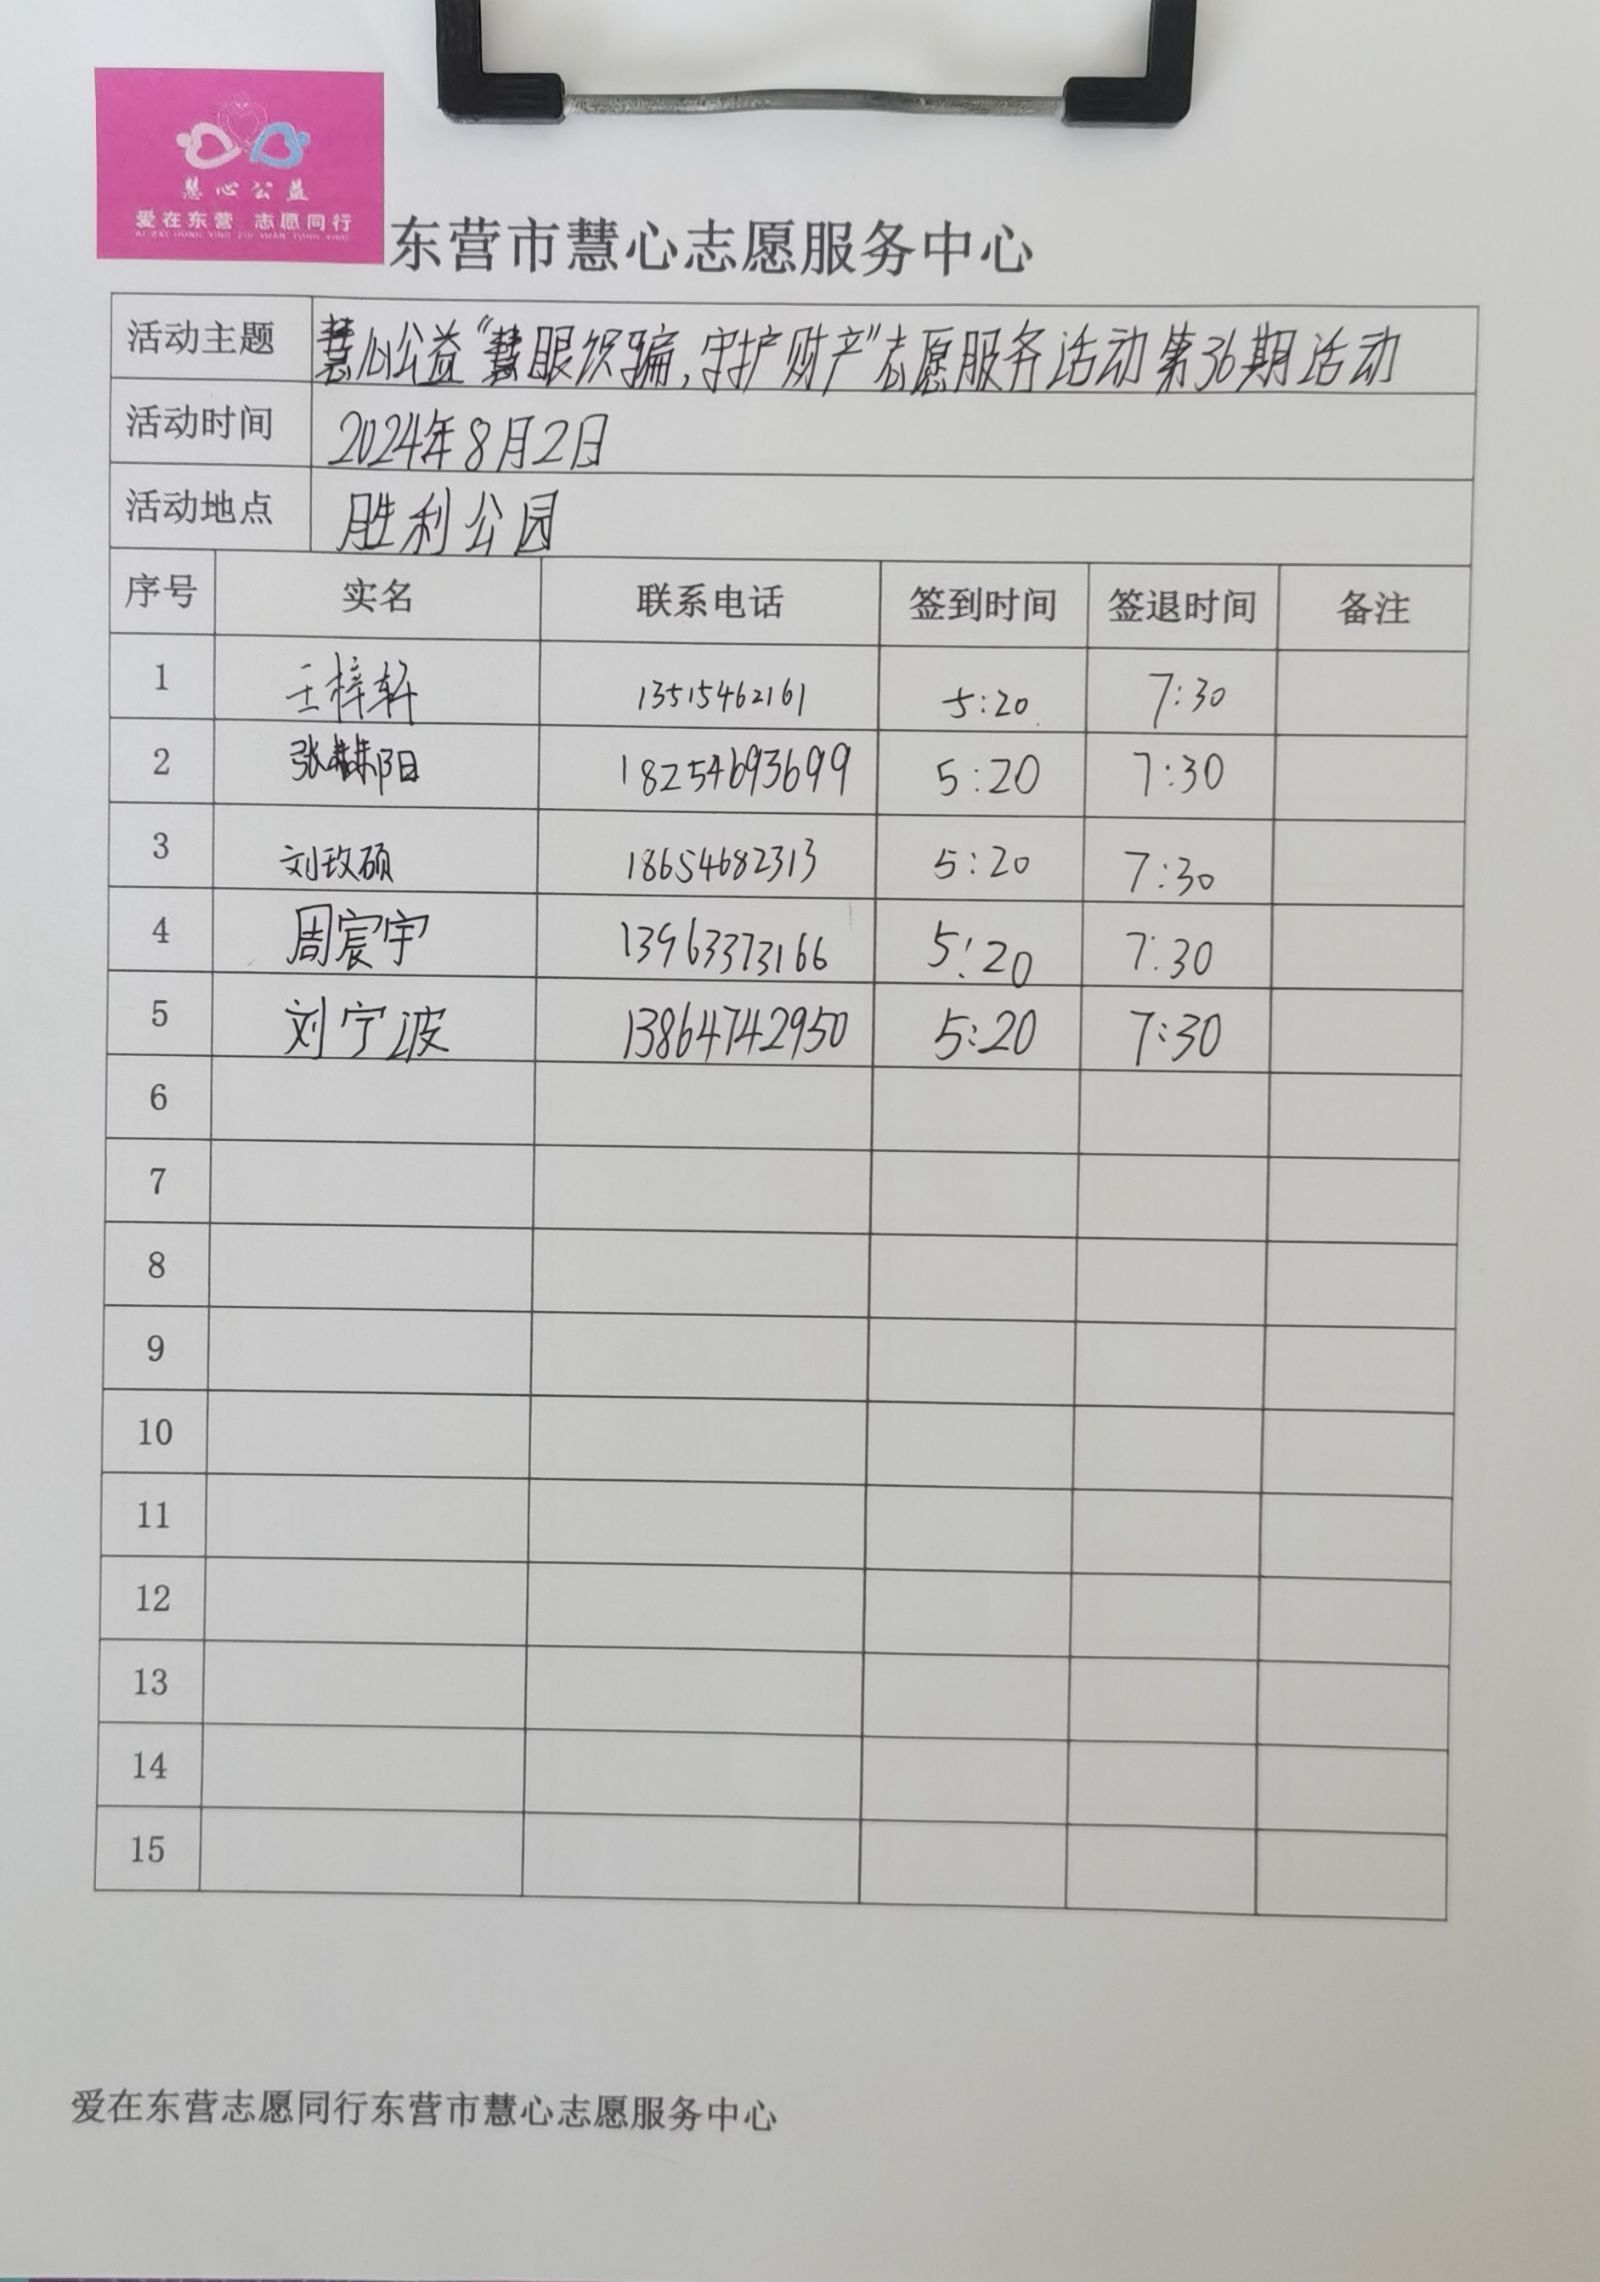 慧心公益
爱在东营 志愿同行
AI ZAI DONG YING ZHI YUAN TONG XING
东营市慧心志愿服务中心
活动主题 慧心公益“慧眼识骗,守护财产”志愿服务活动第36期活动
活动时间 2024年8月2日
活动地点 胜利公园
序号 实名 联系电话 签到时间 签退时间 备注
1 王梓轩 13515462161 5:20 7:30
2 张 阳 18254693699 5:20 7:30
3 刘玫硕 18654682313 5:20 7:30
4 周宸宇 13963373166 5:20 7:30
5 刘宁波 13864742950 5:20 7:30
6
7
8
9
10
11
12
13
14
15
爱在东营志愿同行东营市慧心志愿服务中心